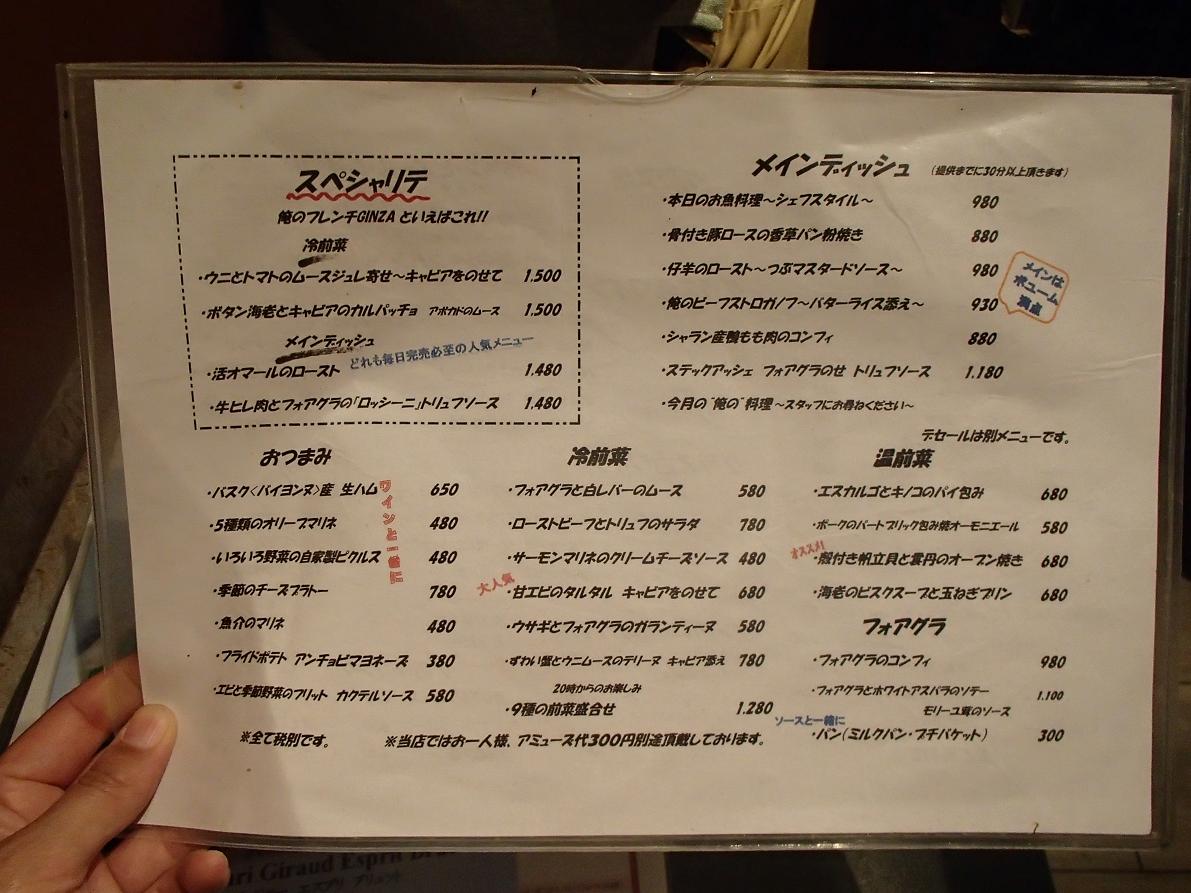 スペシャリテ
俺のフレンチGINZA といえばこれ!!
冷前菜
・ウニとトマトのムースジュレ寄せ～キャビアをのせて 1.500
・ボタン海老とキャビアのカルパッチョ アボカドのムース 1.500
メインディッシュ
どれも毎日完売必至の人気メニュー
・活オマールのロースト 1.480
・牛ヒレ肉とフォアグラの「ロッシーニ」トリュフソース 1.480
メインディッシュ (提供までに30分以上頂きます)
・本日のお魚料理～シェフスタイル～ 980
・骨付き豚ロースの香草パン粉焼き 880
・仔羊のロースト～つぶマスタードソース～ 980
・俺のビーフストロガノフ～バターライス添え～ 930
メインは
ボューム
満点
・シャラン産鴨もも肉のコンフィ 880
・ステックアッシェ フォアグラのせ トリュフソース 1.180
・今月の"俺の"料理～スタッフにお尋ねください～
デセールは別メニューです。
おつまみ
・バスク<バイヨンヌ>産 生ハム 650
・5種類のオリーブマリネ 480
・いろいろ野菜の自家製ピクルス 480
・季節のチーズプラトー 780
・魚介のマリネ 480
・フライドポテト アンチョビマヨネーズ 380
・エビと季節野菜のフリット カクテルソース 580
ワインと一緒に
冷前菜
・フォアグラと白レバーのムース 580
・ローストビーフとトリュフのサラダ 780
・サーモンマリネのクリームチーズソース 480
大人気
・甘エビのタルタル キャビアをのせて 680
・ウサギとフォアグラのガランティーヌ 580
・ずわい蟹とウニムースのテリーヌ キャビア添え 780
20時からのお楽しみ
・9種の前菜盛合せ 1.280
温前菜
・エスカルゴとキノコのパイ包み 680
・ポークのパートブリック包み焼オーモニエール 580
オススメ!
・殻付き帆立貝と雲丹のオーブン焼き 680
・海老のビスクスープと玉ねぎプリン 680
フォアグラ
・フォアグラのコンフィ 980
・フォアグラとホワイトアスパラのソテー 1.100
モリーユ茸のソース
ソースと一緒に
・パン(ミルクパン・プチバケット) 300
※全て税別です。 ※当店ではお一人様、アミューズ代300円別途頂戴しております。